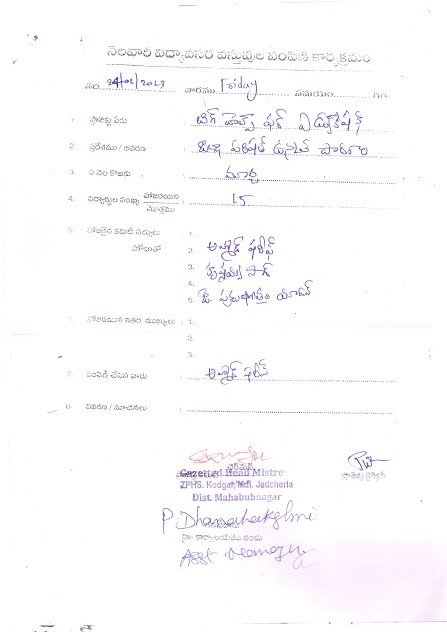 నెలవారి విద్యావసర వస్తువుల పంపిణి కార్యక్రమం
తేది 24/02/2023 వారము Friday సమయం గం.
1. ప్రాజెక్టు పేరు : బిగ్ హెల్ప్ ఫర్ ఎడ్యుకేషన్
2. ప్రదేశము / ఆవరణ : జిల్లా పరిషత్ ఉన్నత పాఠశాల
3. ఏ నెల కొరకు : మార్చి
4. విద్యార్థుల సంఖ్య హాజరయిన / మొత్తము : 15
5. హాజరైన కమిటీ సభ్యులు : 1.
హోదాతో 2. అహ్మద్ షరీఫ్
3.
4.
5. జె. పురుషోత్తం యాదవ్
6. హాజరయిన ఇతర ముఖ్యులు : 1.
2.
3.
7. పంపిణీ చేసిన వారు : అహ్మద్ షరీఫ్
8. వివరణ / సూచనలు :
చైర్మెన్
Gazetted Head Mistre
ZPHS. Kodgal, Mdl. Jadcherla
Dist. Mahabubnagar
ప్రాజెక్టు డైరెక్టర్
P Dhanalakshmi
హై. కార్యాలయము నందు
Asst